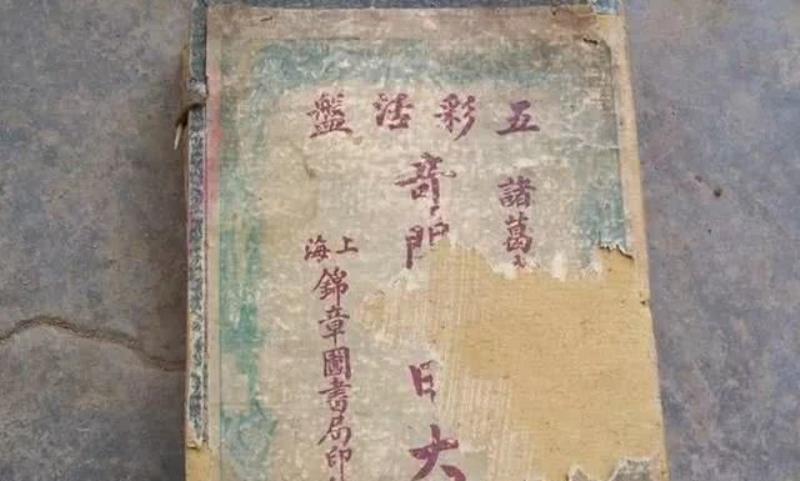 五彩活盤
諸葛
奇門
大
上海
錦章圖書局印